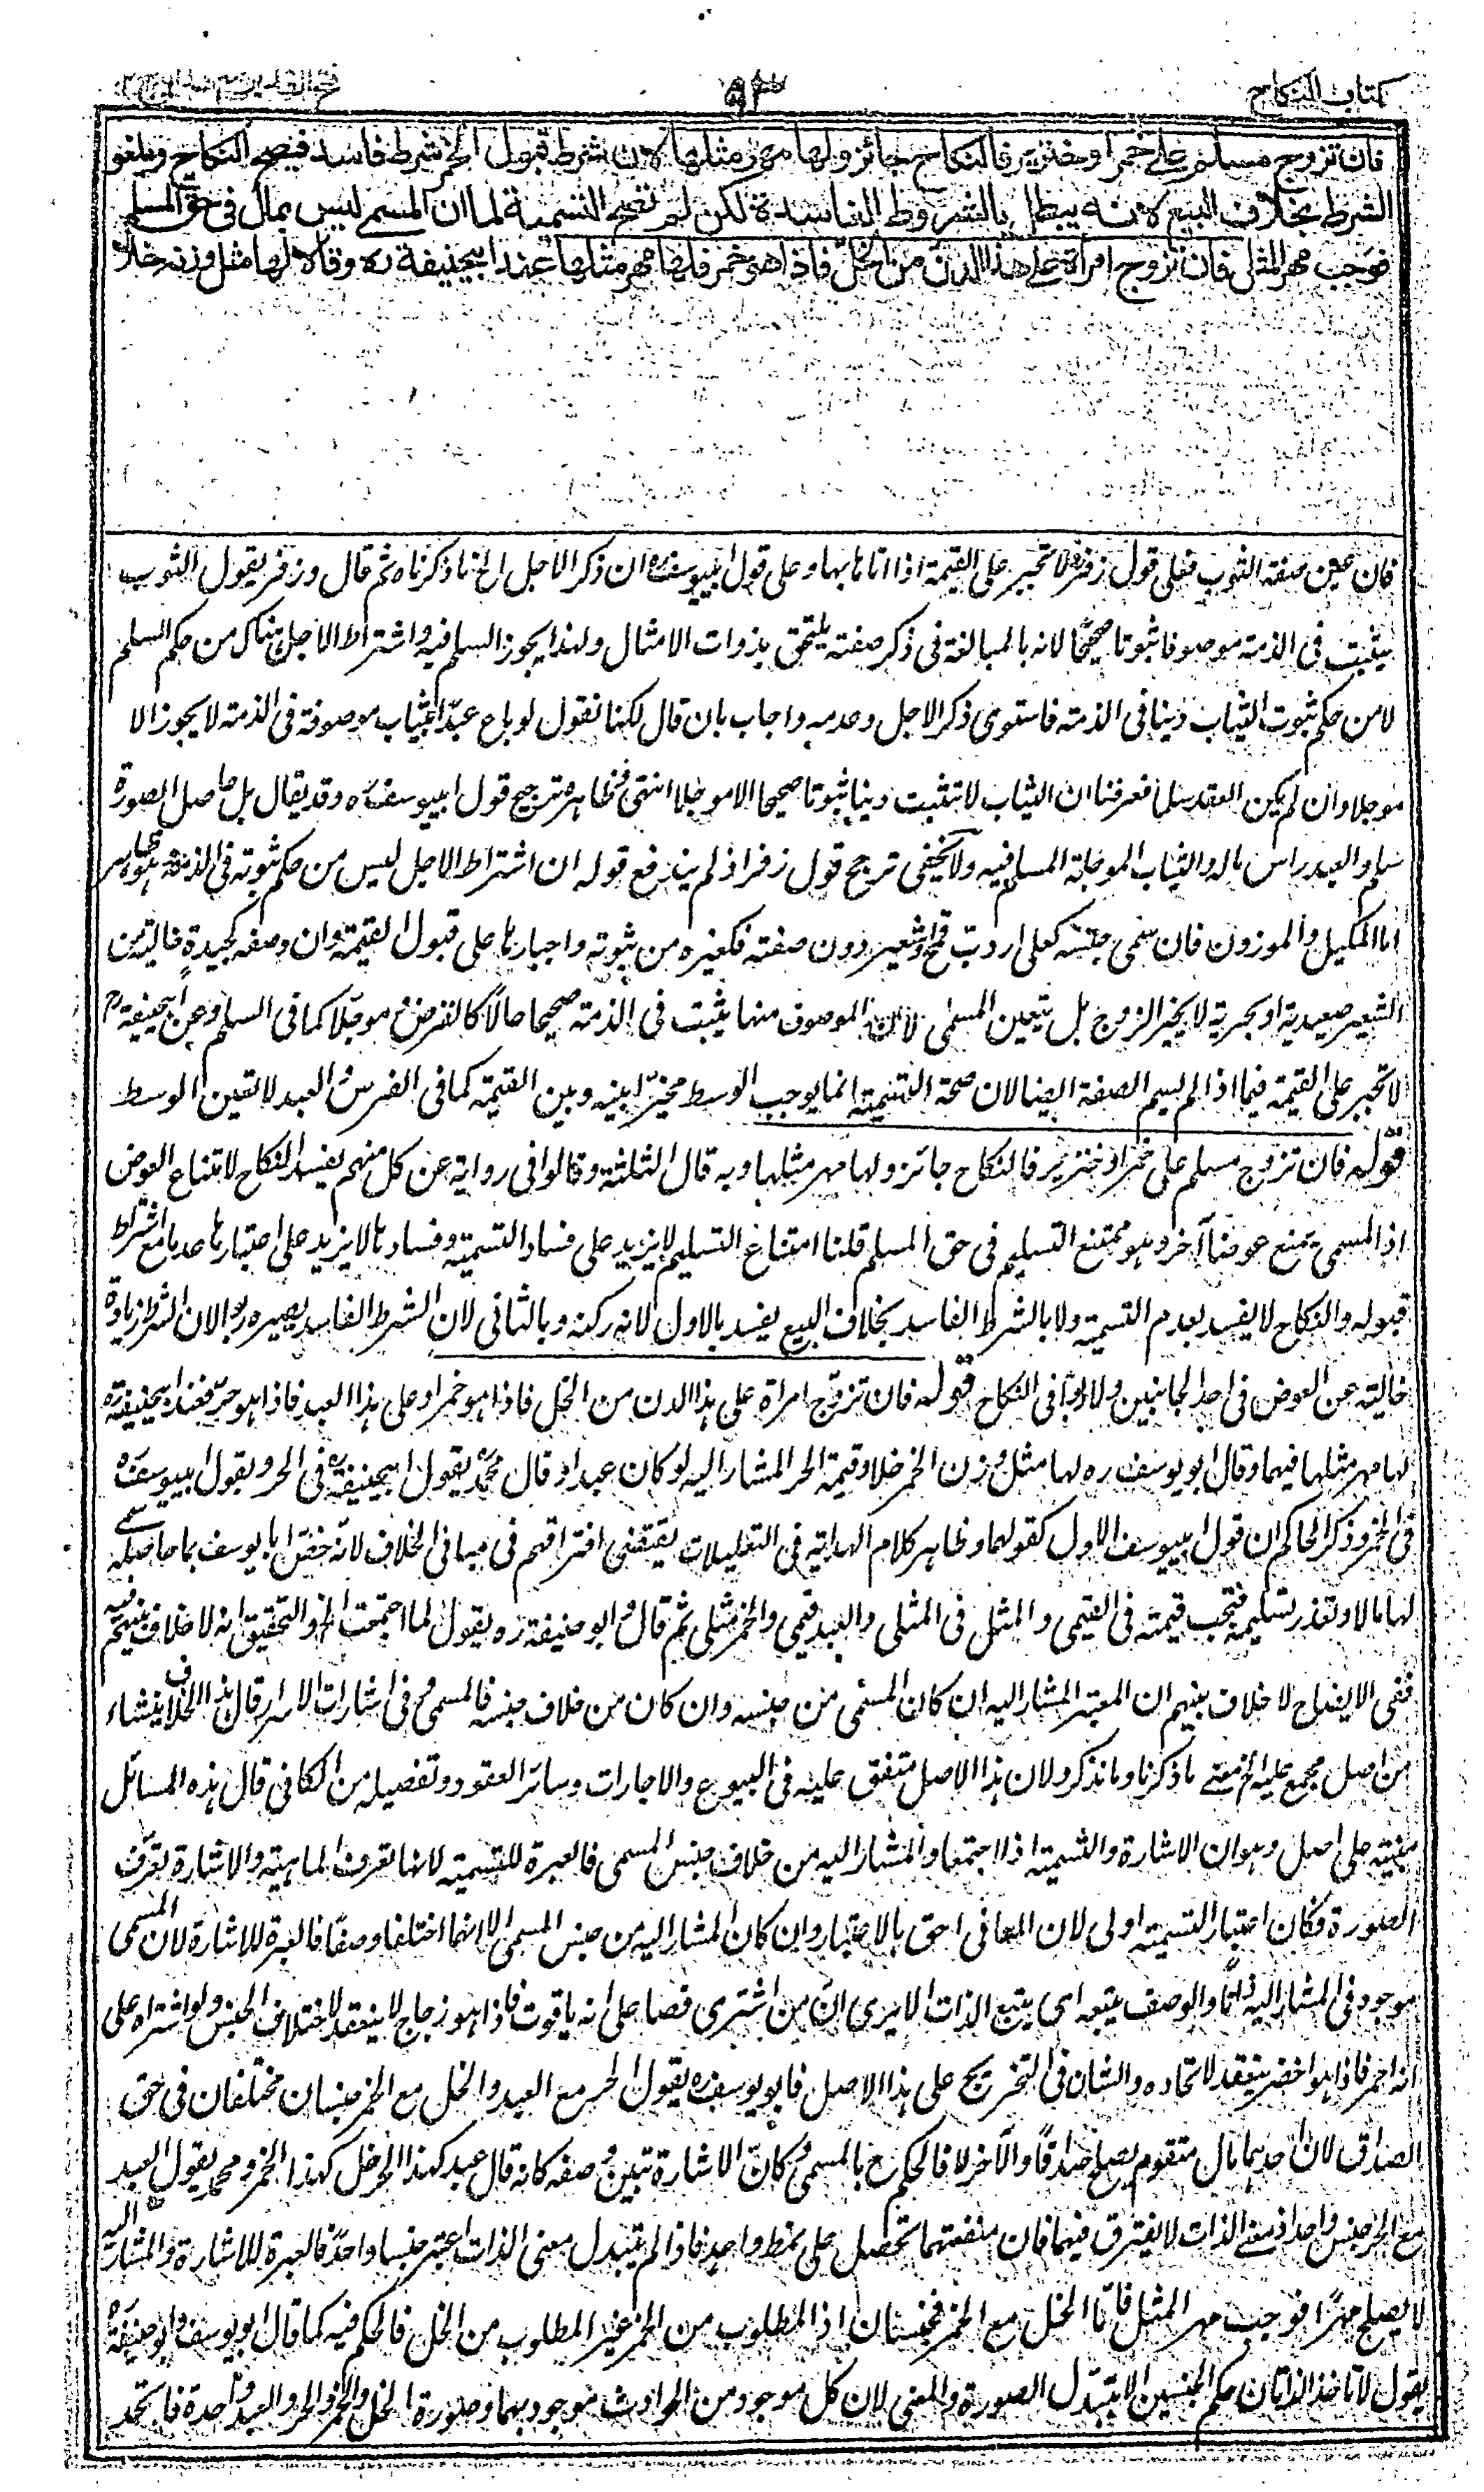 كتاب النكاح
٥٩٣
فتح القدير مع هداية ج٢
فان تزوج مسلم على خمر او خنزير فالنكاح جائز ولها مهر مثلها لان شرط قبول الخمر شرط فاسد فيصح النكاح ويلغو
الشرط بخلاف البيع لانه يبطل بالشروط الفاسدة لكن لم تصح التسمية لما ان المسمى ليس بمال في حق المسلم
فوجب مهر المثل فان تزوج امرأة على هذا الدن من الخل فاذا هو خمر فلها مهر مثلها عند ابيحنيفة ره وقالا لها مثل وزنه خلا
فان عين صفة الثوب فعلى قول زفره لا تجبر على القيمة اذا اتاها بها وعلى قول ابيوسف ره ان ذكر الاجل الخ ما ذكرناه ثم قال وزفر يقول الثوب
يثبت فى الذمة موصوفا ثبوتا صحيحًا لانه بالمبالغة فى ذكر صفته يلتحق بذوات الامثال ولهذا يجوز السلم فيه واشتراط الاجل هناك من حكم السلم
لا من حكم ثبوت الثياب دينا فى الذمة فاستوى ذكر الاجل وعدمه واجاب بان قال لكنا نقول لو باع عبدًا بثياب موصوفة فى الذمة لا يجوز الا
موجلا وان لم يكن العقد سلما فعرفنا ان الثياب لا تثبت دينا ثبوتا صحيحا الا موجلا انتهى فظاهره ترجيح قول ابيوسف ره وقد يقال بل حاصل الصورة
سلم والعبد راس ماله والثياب الموجلة المسلم فيه ولا يخفى ترجح قول زفر اذ لم يندفع قوله ان اشتراط الاجل ليس من حكم ثبوته فى الذمة هو ظاهر
اما المكيل والموزون فان سمى جنسه كعلى اردب قمح وشعير دون صفته فكغيره من ثبوته واجبارها على قبول القيمة وان وصفه كجيدة خالية من
الشعير صعيدية او بحرية لا يخير الزوج بل يتعين المسمى لان الموصوف منها يثبت فى الذمة صحيحا حالًا كالقرض وموجلًا كما فى السلم وعن ابيحنيفة رح
لا تجبر على القيمة فيما اذا لم يسم الصفة ايضا لان صحة التسمية انما يوجب الوسط مخيرًا بينه وبين القيمة كما فى الفرس والعبد لا تعين الوسط
قوله فان تزوج مسلم على خمر او خنزير فالنكاح جائز ولها مهر مثلها وبه قال الثلثة وقالوا فى رواية عن كل منهم يفسد النكاح لامتناع العوض
اذ المسمى يمنع عوضا آخر وهو ممتنع التسليم فى حق المسلم قلنا امتناع التسليم لا يزيد على فساد التسمية وفسادها لا يزيد على اعتبارها عدما مع اشتراط
قبوله والنكاح لا يفسد بعدم التسمية ولا بالشرط الفاسد بخلاف البيع يفسد بالاول لانه ركنه وبالثانى لان الشرط الفاسد يصيره ربوا لان الشرط زيادة
خالية عن العوض فى احد الجانبين ولا ربوا فى النكاح قوله فان تزوج امراة على هذا الدن من الخل فاذا هو خمر او على هذا العبد فاذا هو حر فعند ابيحنيفة ره
لها مهر مثلها فيهما وقال ابو يوسف ره لها مثل وزن الخمر خلا وقيمة الحر المشار اليه لو كان عبدا وقال محمد يقول ابيحنيفة ره فى الحر ويقول ابيوسف ره
فى الخمر وذكر الحاكم ان قول ابيوسف الاول كقولهما وظاهر كلام الهداية فى التعليلات يقتضى افتراقهم فى مبانى الخلاف لانه خص ابا يوسف بما حاصله سمى
لها مالا وتعذر تسليمه فتجب قيمته فى القيمى والمثل فى المثلى والعبد قيمى والخمر مثلى ثم قال وابو حنيفة ره يقول لما اجتمعت الخ والتحقيق انه لا خلاف بينهم فيه
ففى الايضاح لا خلاف بينهم ان المعتبر المشار اليه ان كان المسمى من جنسه وان كان من خلاف جنسه فالمسمى وفى اشارات الاسرار قال هذا الخلاف ينشاء
من اصل مجمع عليه الخ معنى ما ذكرنا وما نذكر ولان هذا الاصل متفق عليه فى البيوع والاجارات وسائر العقود وتفصيله من الكافى قال هذه المسائل
مبنية على اصل وهو ان الاشارة والتسمية اذا اجتمعا والمشار اليه من خلاف جنس المسمى فالعبرة للتسمية لانها تعرف الماهية والاشارة تعرف
الصورة فكان اعتبار التسمية اولى لان المعانى احق بالاعتبار وان كان المشار اليه من جنس المسمى الا انهما اختلفا وصفا فالعبرة للاشارة لان المسمى
موجود فى المشار اليه ذاتًا والوصف يتبعه اى يتبع الذات الا يرى ان من اشترى فصا على انه ياقوت فاذا هو زجاج لا ينعقد لاختلاف الجنس ولو اشتراه على
انه احمر فاذا هو اخضر ينعقد لاتحاده والشان فى التخريج على هذا الاصل فابو يوسف ره يقول الحر مع العبد والخل مع الخمر جنسان مختلفان فى حق
الصداق لان احدهما مال متقوم يصلح صداقًا والآخر لا فالحكم ح بالمسمى وكان الاشارة تبين وصفه كانه قال عبد كهذا الحر خل كهذا الخمر ومحمد يقول العبد
مع الحر جنس واحد اذ معنى الذات لا يفترق فيهما فان منفعتهما تحصل على نمط واحد فاذا لم يتبدل معنى الذات اعتبر جنسا واحدًا فالعبرة للاشارة والمشار اليه
لا يصلح مهرًا فوجب مهر المثل فأما الخل مع الخمر فجنسان اذ المطلوب من الخمر غير المطلوب من الخل فالحكم فيه كما قال ابو يوسف وابو حنيفة ره
يقول لا تاخذ الذاتان حكم الجنسين الا بتبدل الصورة والمعنى لان كل موجود من الحوادث موجود بهما وصورة الخل والخمر والحر والعبد واحدة فاتحد